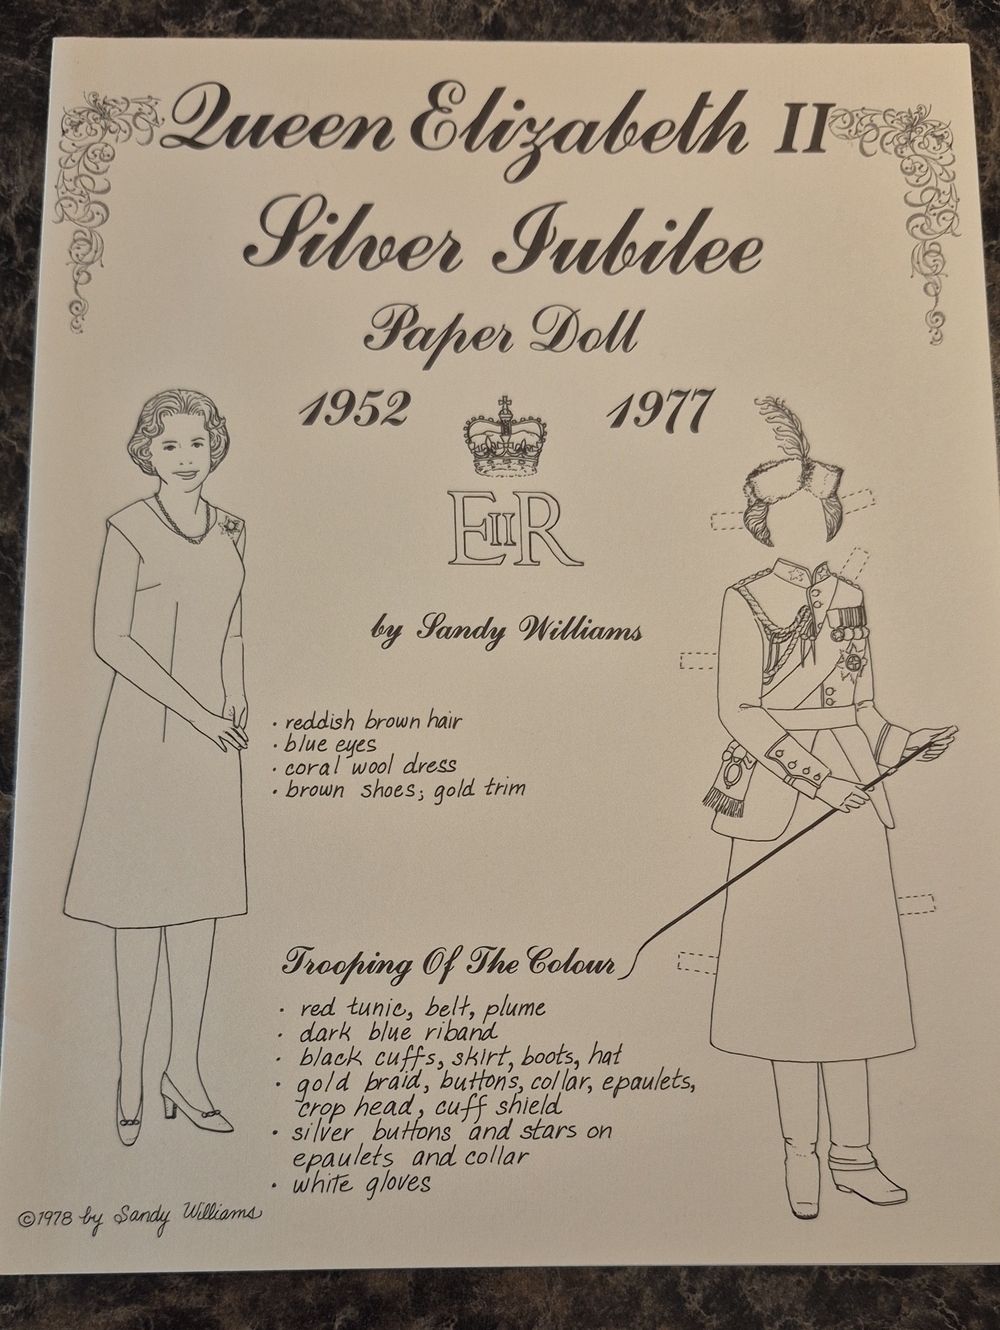 Queen Elizabeth II
Silver Jubilee
Paper Doll
1952 1977
EIIR
by Sandy Williams
· reddish brown hair
· blue eyes
· coral wool dress
· brown shoes; gold trim
Trooping Of The Colour
· red tunic, belt, plume
· dark blue riband
· black cuffs, skirt, boots, hat
· gold braid, buttons, collar, epaulets,
crop head, cuff shield
· silver buttons and stars on
epaulets and collar
· white gloves
©1978 by Sandy Williams